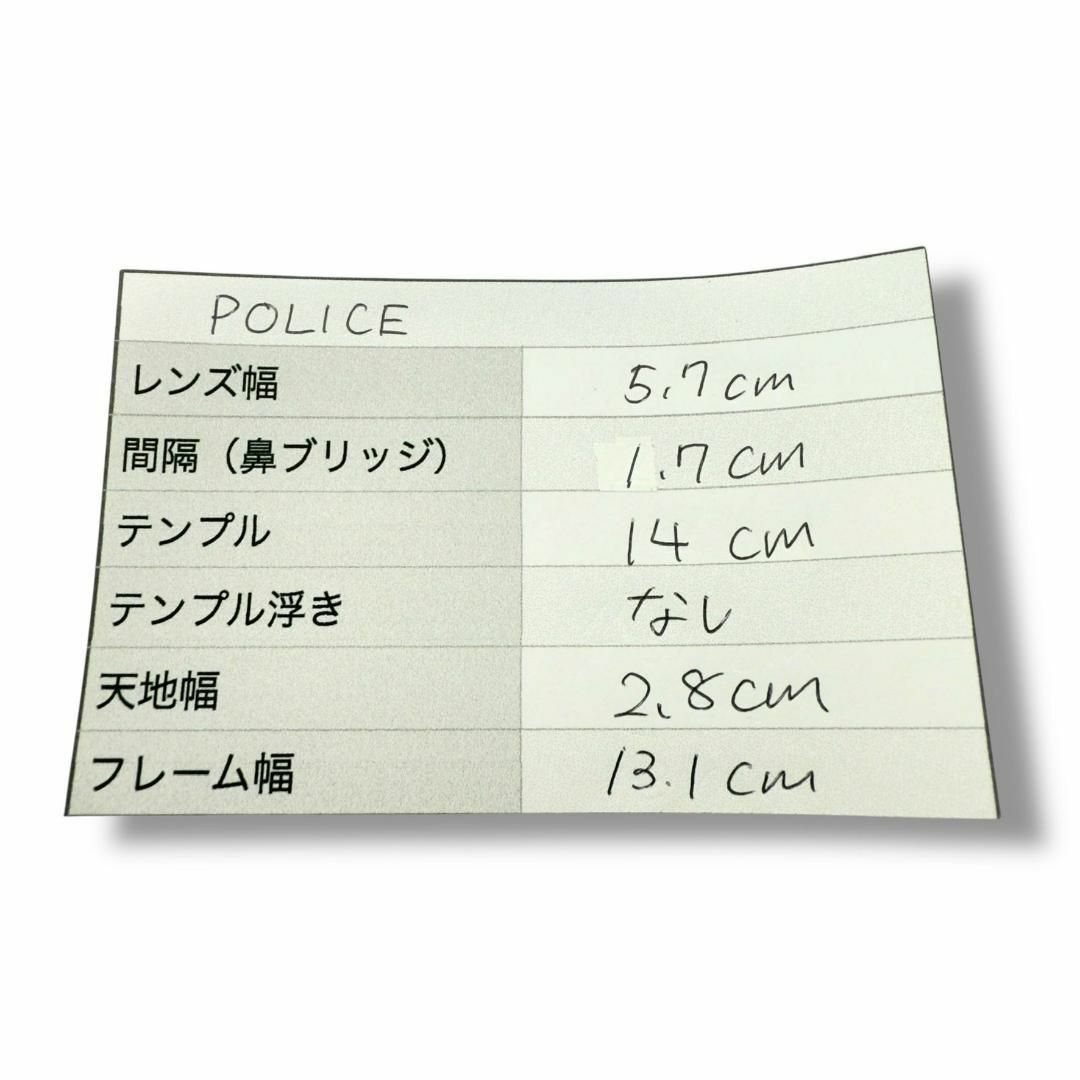 POLICE
レンズ幅 5.7cm
間隔（鼻ブリッジ） 1.7cm
テンプル 14 cm
テンプル浮き なし
天地幅 2.8cm
フレーム幅 13.1cm